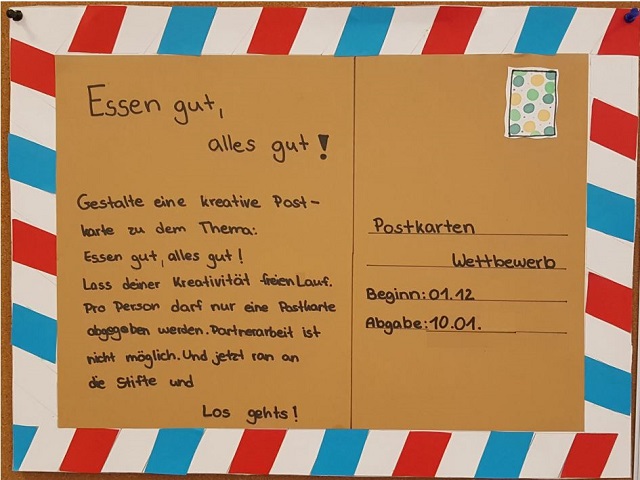 Essen gut,
alles gut!
Gestalte eine kreative Post-
karte zu dem Thema:
Essen gut, alles gut!
Lass deiner Kreativität freien Lauf.
Pro Person darf nur eine Postkarte
abgegeben werden. Partnerarbeit ist
nicht möglich. Und jetzt ran an
die Stifte und
Los gehts!
Postkarten
Wettbewerb
Beginn: 01.12
Abgabe: 10.01.